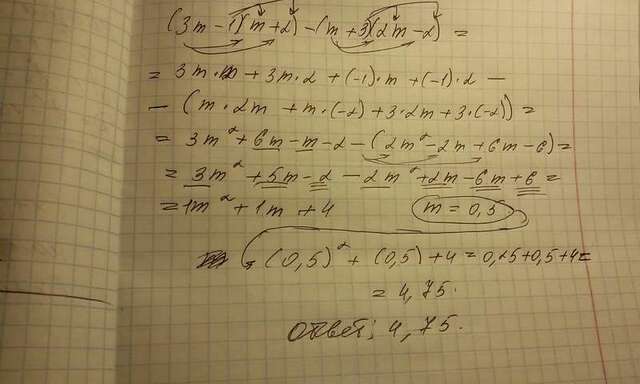 (3m-1)(m+2)-(m+3)(2m-2)=
=3m·m+3m·2+(-1)·m+(-1)·2-
-(m·2m+m·(-2)+3·2m+3·(-2))=
=3m²+6m-m-2-(2m²-2m+6m-6)=
=3m²+5m-2-2m²+2m-6m+6=
=1m²+1m+4 m=0,5
(0,5)²+(0,5)+4=0,25+0,5+4=
=4,75.
Ответ: 4,75.